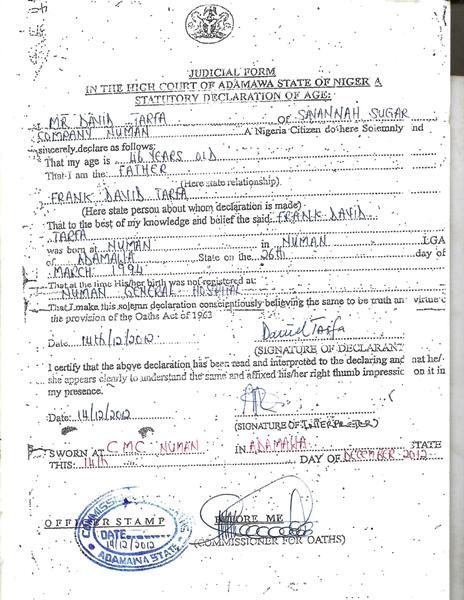 JUDICIAL FORM
IN THE HIGH COURT OF ADAMAWA STATE OF NIGER A
STATUTORY DECLARATION OF AGE:
I MR DAVID TARFA OF SAVANNAH SUGAR
COMPANY NUMAN A Nigeria Citizen do here Solemnly and
sincerely declare as follows:
That my age is 46 YEARS OLD
That I am the: FATHER
(Here state relationship)
FRANK DAVID TARFA
(Here state person about whom declaration is made)
That to the best of my knowledge and belief the said: FRANK DAVID
TARFA
was born at NUMAN in NUMAN LGA
of ADAMAWA State on the 26th day of
MARCH 1994
That at the time His/her birth was not registered at:
NUMAN GENERAL HOSPITAL
That I make this solemn declaration conscientiously believing the same to be truth an virtue o
the provision of the Oaths Act of 1963
Date 14th/12/2012 Daniel Tarfa
(SIGNATURE OF DECLARANT
I certify that the above declaration has been read and interpreted to the declaring and hat he/
she appears clearly to understand the same and affixed his/her right thumb impressic on it in
my presence.
Date: 14/12/2012
(SIGNATURE OF INTERPRETER)
SWORN AT CMC NUMAN IN ADAMAWA STATE
THIS: 14th DAY OF DECEMBER 2012
OFFICER STAMP BEFORE ME
COMMISSI
DATE
14/12/2012
ADAMAWA STATE
(COMMISSIONER FOR OATHS)